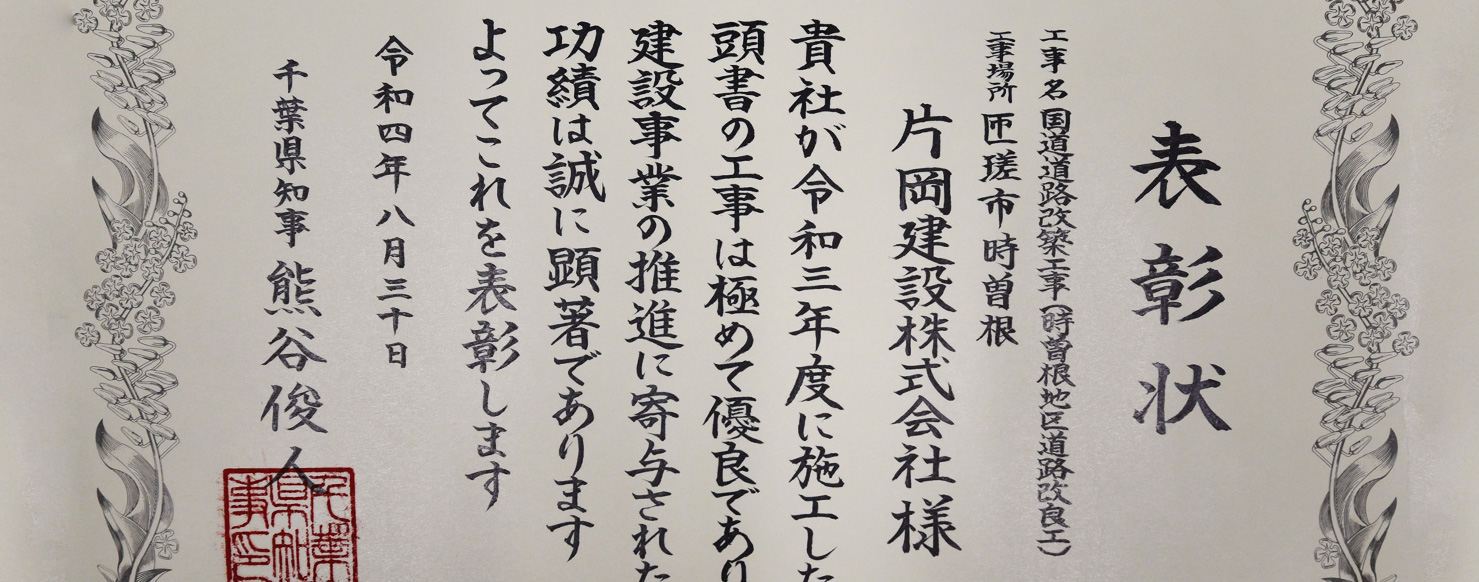 表彰状
工事名 国道道路改築工事(時曽根地区道路改良工)
工事場所 匝瑳市時曽根
片岡建設株式会社様
貴社が令和三年度に施工した
頭書の工事は極めて優良であり
建設事業の推進に寄与された
功績は誠に顕著であります
よってこれを表彰します
令和四年八月三十日
千葉県知事 熊谷俊人
千葉
県知
事印